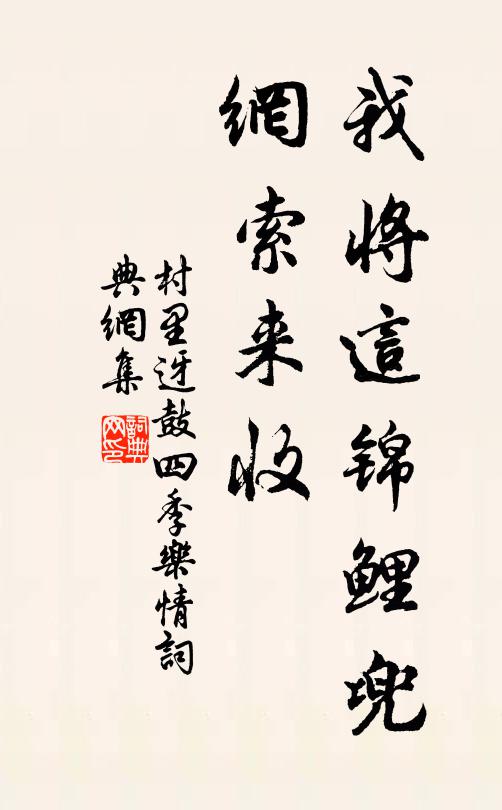 我將這錦鯉兜
網索来收
村里迓鼓四季樂情詞
典網集
詞典
网印